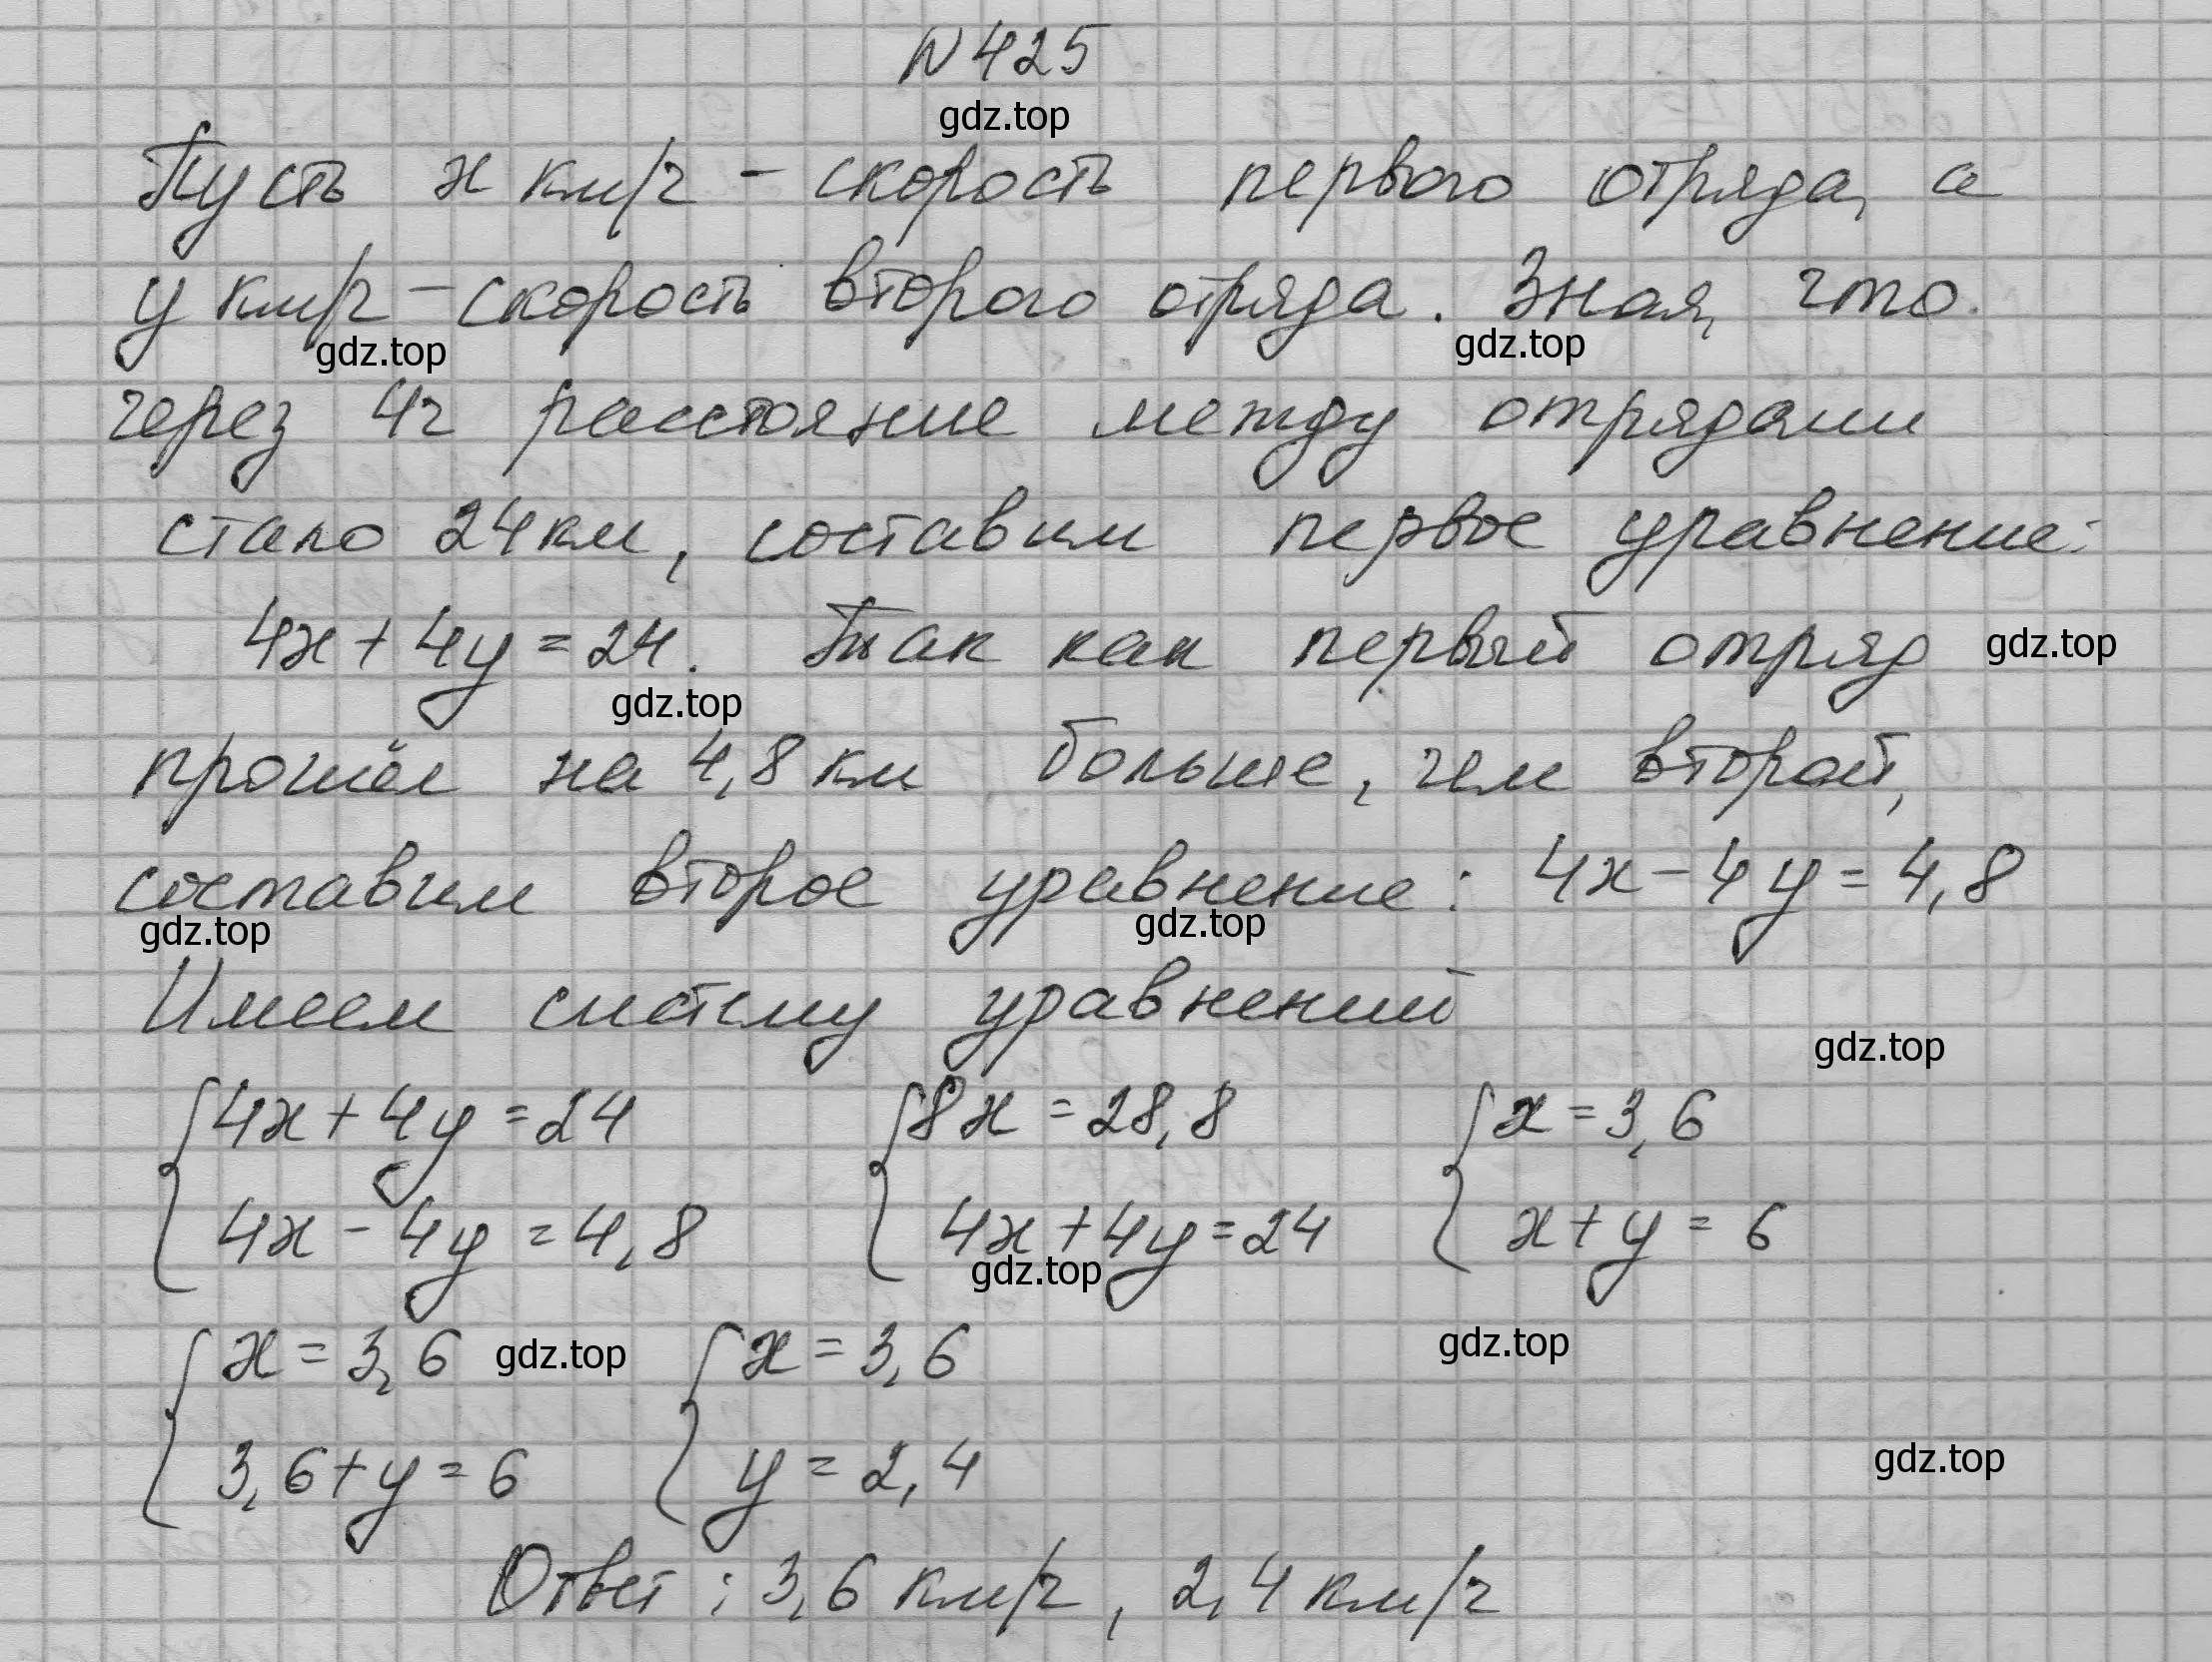 N 425
gdz.top
Пусть x км/ч - скорость первого отряда, а
y км/ч - скорость второго отряда. Зная, что
gdz.top gdz.top
через 4ч расстояние между отрядами
стало 24км, составим первое уравнение:
4x + 4y = 24. Так как первый отряд gdz.top
gdz.top
прошёл на 4,8 км больше, чем второй,
составим второе уравнение: 4x - 4y = 4,8
gdz.top gdz.top
Имеем систему уравнений
gdz.top
{4x + 4y = 24 {8x = 28,8 {x = 3,6
4x - 4y = 4,8 4x + 4y = 24 x + y = 6
gdz.top
{x = 3,6 gdz.top {x = 3,6 gdz.top
3,6 + y = 6 y = 2,4 gdz.top
Ответ: 3,6 км/ч, 2,4 км/ч